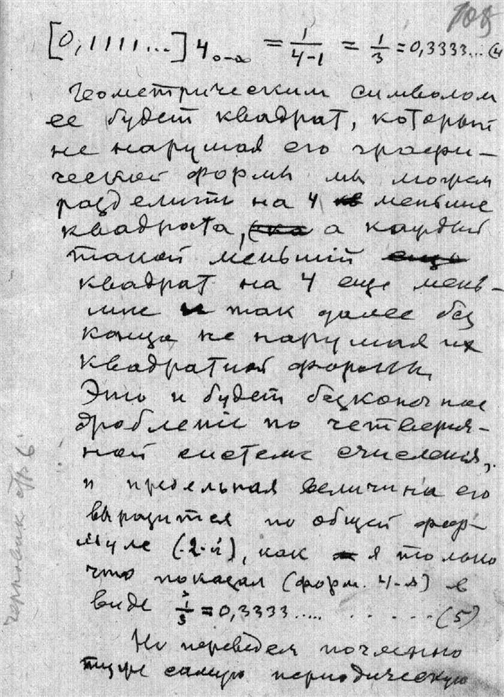 108
[0,1111...] 4₀₋∞ = 1/(4-1) = 1/3 = 0,3333... (4
Геометрическим символом
ее будет квадрат, который
не нарушая его графи-
ческой формы мы можем
разделить на 4 меньше
квадрата, а каждый
такой меньший
квадрат на 4 еще мень-
шие и так далее без
конца не нарушая их
квадратной формы.
Это и будет безконечное
дробление по четверич-
ной системе счисления,
и предельная величина его
выразится по общей фор-
муле (-2-й), как я только
что показал (форм. 4-я) в
виде 1/3 = 0,3333..... . . . . . (5)
Но переведем почленно
туже самую периодическую
черновик стр. 6